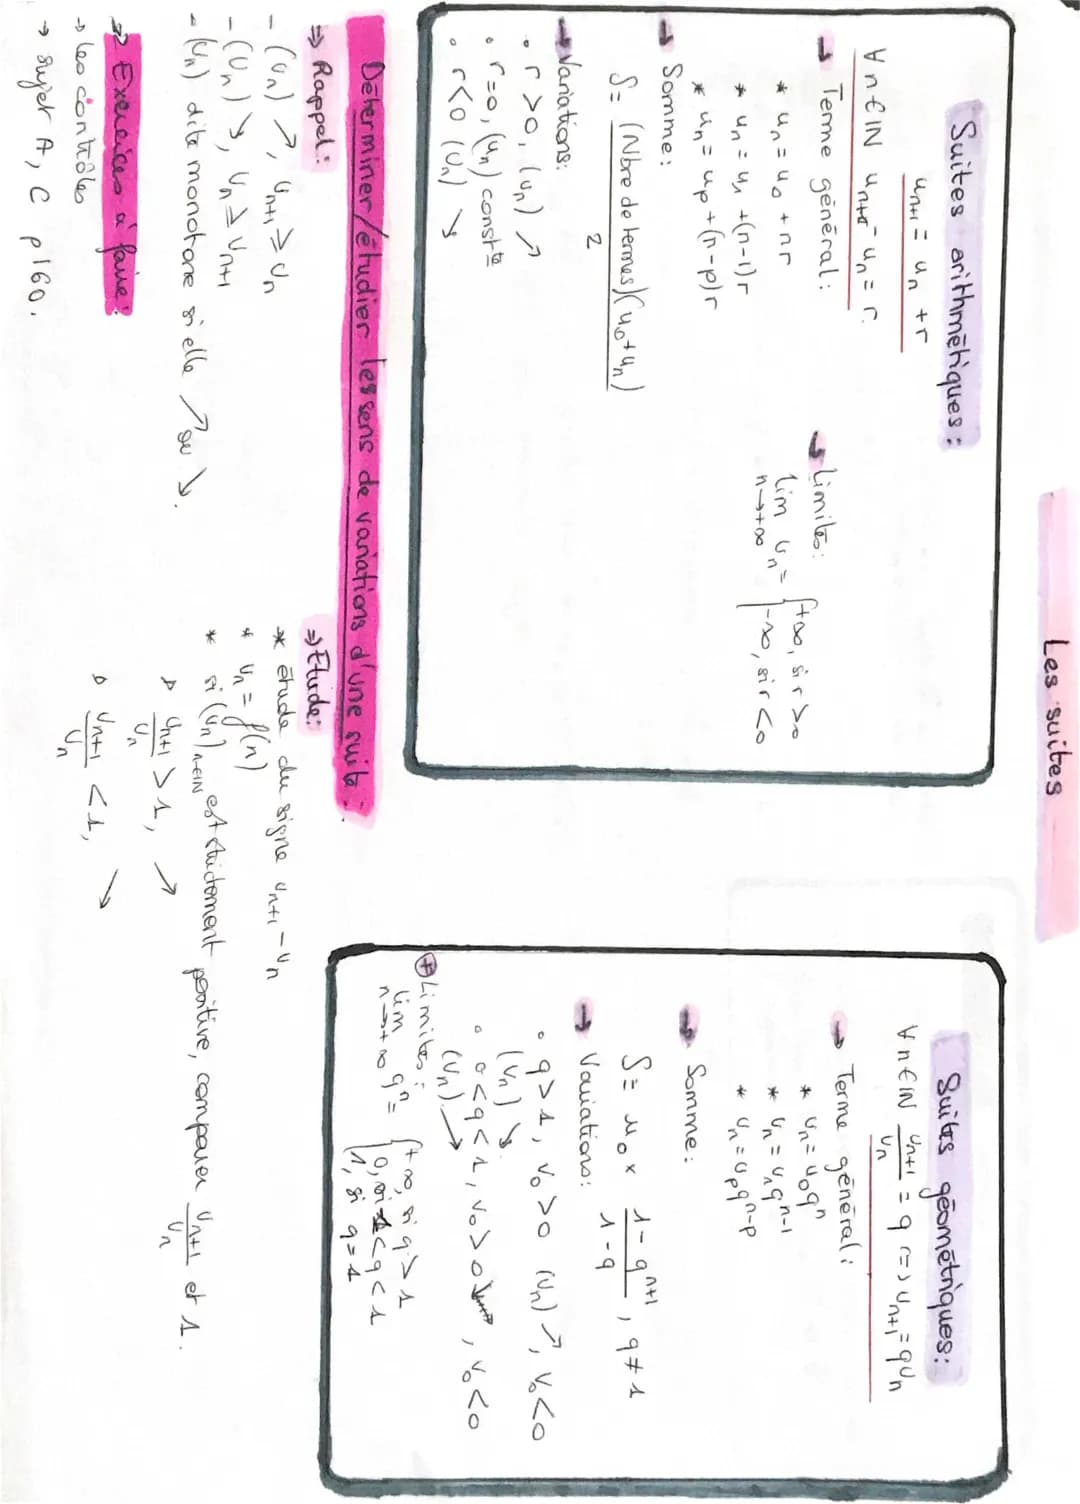 Les suites
Suites arithmétiques :
u_{n+1} = u_n + r
∀ n ∈ IN u_{n+1} - u_n = r
→ Terme général :
* u_n = u_0 + nr
* u_n = u_1 + (n-1)r
* u_n = u_p + (n-p)r
→ Limites :
lim u_n = { +∞, si r > 0
n→+∞ { -∞, si r < 0
→ Somme :
S = (Nbre de termes)(u_0 + u_n)
2
→ Variations :
• r > 0, (u_n) ↗
• r = 0, (u_n) const^te
• r < 0 (u_n) ↘
Suites géométriques :
∀ n ∈ IN u_{n+1}/u_n = q <=> u_{n+1} = q u_n
→ Terme général :
* u_n = u_0 q^n
* u_n = u_1 q^{n-1}
* u_n = u_p q^{n-p}
→ Somme :
S = u_0 × (1 - q^{n+1})/(1 - q), q ≠ 1
→ Variations :
• q > 1, v_0 > 0 (u_n) ↗, v_0 < 0
(u_n) ↘
• 0 < q < 1, v_0 > 0 ↘, v_0 < 0
(u_n) ↗
⊕ Limites :
lim q^n = { +∞, si q > 1
n→+∞ { 0, si -1 < q < 1
{ 1, si q = 1
Déterminer/étudier les sens de variations d'une suite :
⇒ Rappel :
- (u_n) ↗, u_{n+1} ≥ u_n
- (u_n) ↘, u_n ≥ u_{n+1}
- (u_n) dite monotone si elle ↗ ou ↘.
⇒ Etude :
* étude du signe u_{n+1} - u_n
* u_n = f(n)
* si (u_n)_{n∈IN} est strictement positive, comparer u_{n+1}/u_n et 1.
▹ u_{n+1}/u_n > 1, ↗
▹ u_{n+1}/u_n < 1, ↘
⇒ Exercices à faire :
→ les contrôles
→ sujet A, C p160.